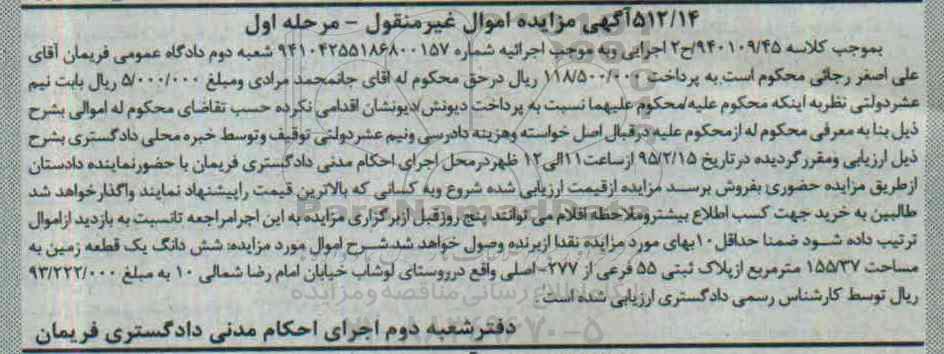 ۵۱۲/۱۴آگهی مزایده اموال غیرمنقول - مرحله اول
بموجب کلاسه ۹۴۰۱۰۹/۴۵/ح۲ اجرایی وبه موجب اجرائیه شماره ۹۴۱۰۴۲۵۵۱۸۶۸۰۰۱۵۷ شعبه دوم دادگاه عمومی فریمان آقای
علی اصغر رجائی محکوم است به پرداخت ۱۱۸/۵۰۰/۰۰۰ ریال درحق محکوم له اقای جانمحمد مرادی ومبلغ ۵/۰۰۰/۰۰۰ ریال بابت نیم
عشردولتی نظربه اینکه محکوم علیه/محکوم علیهما نسبت به پرداخت دیونش/دیونشان اقدامی نکرده حسب تقاضای محکوم له اموالی بشرح
ذیل بنا به معرفی محکوم له ازمحکوم علیه درقبال اصل خواسته وهزینه دادرسی ونیم عشردولتی توقیف وتوسط خبره محلی دادگستری بشرح
ذیل ارزیابی ومقررگردیده درتاریخ ۹۵/۲/۱۵ ازساعت۱۱الی۱۲ ظهردرمحل اجرای احکام مدنی دادگستری فریمان با حضورنماینده دادستان
ازطریق مزایده حضوری بفروش برسد مزایده ازقیمت ارزیابی شده شروع وبه کسانی که بالاترین قیمت راپیشنهاد نمایند واگذارخواهد شد
طالبین به خرید جهت کسب اطلاع بیشتروملاحظه اقلام می توانند پنج روزقبل ازبرگزاری مزایده به این اجرامراجعه تانسبت به بازدید ازاموال
ترتیب داده شود ضمنا حداقل ۱۰بهای مورد مزایده نقدا ازبرنده وصول خواهد شد.شرح اموال مورد مزایده: شش دانگ یک قطعه زمین به
مساحت ۱۵۵/۳۷ مترمربع ازپلاک ثبتی ۵۵ فرعی از ۲۷۷-اصلی واقع درروستای لوشاب خیابان امام رضا شمالی ۱۰ به مبلغ ۹۳/۲۲۲/۰۰۰
ریال توسط کارشناس رسمی دادگستری ارزیابی شده است.
دفترشعبه دوم اجرای احکام مدنی دادگستری فریمان